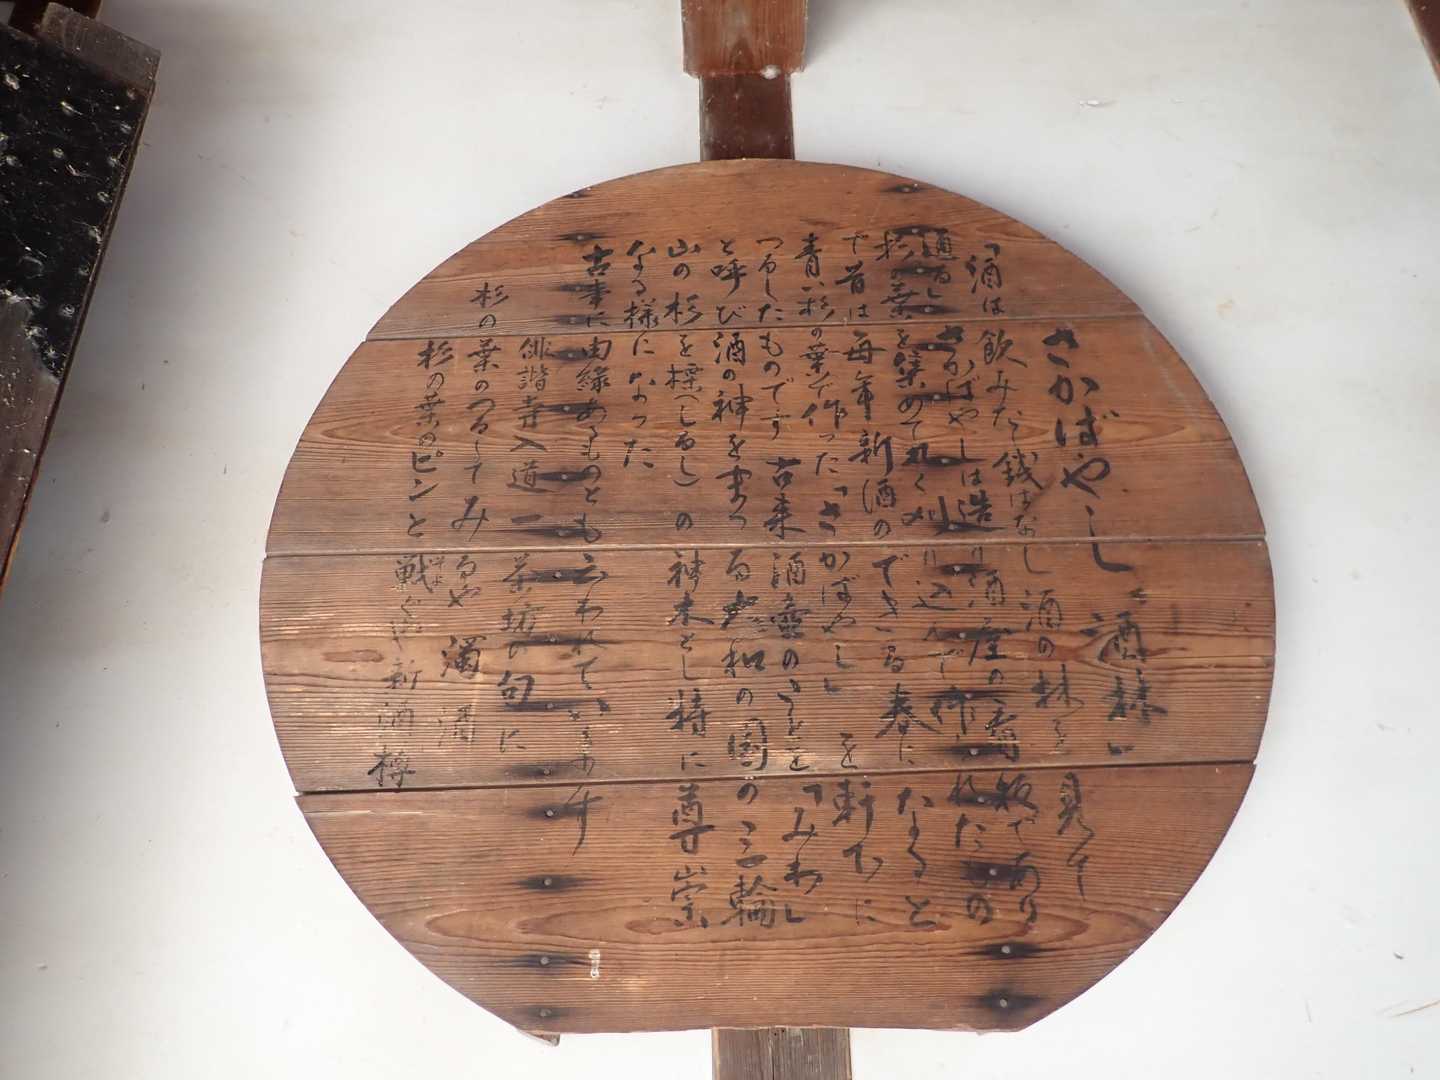 さかばやし「酒林」
「酒は飲みたく銭はなし酒の林を見て
通る」さかばやしは造り酒屋の看板であり
杉の葉を集めて丸く刈り込んで作られたもの
で昔は毎年新酒のできる春になると
青い杉の葉で作った「さかばやし」を軒下に
つるしたものです古来酒壷のことを「みわ」
と呼び酒の神をまつる大和の国の三輪
山の杉を標(しるし)の神木とし特に尊崇
なる様になった
古事に由緑あるものとも云われています
俳諧寺入道一茶坊の句に
杉の葉のつるしてみるや濁酒
杉の葉のピンと戦ぐや新酒樽
そよ